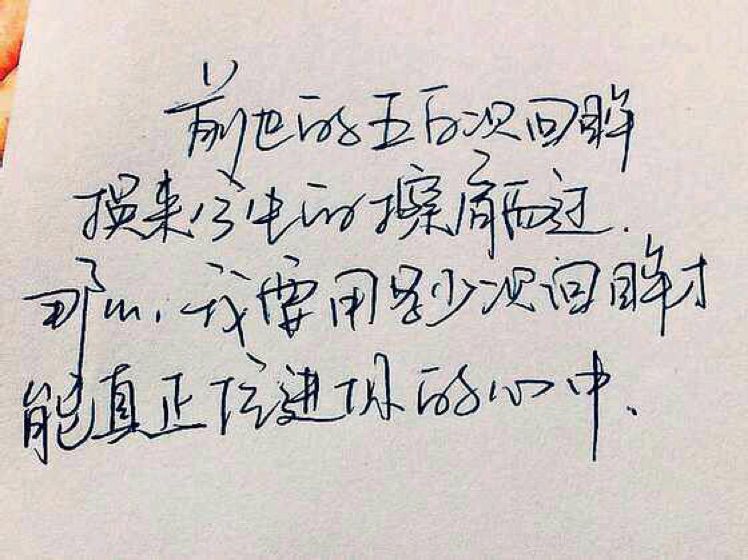 前世的五百次回眸
换来今生的擦肩而过.
那么,我要用多少次回眸才
能真正住进你的心中.